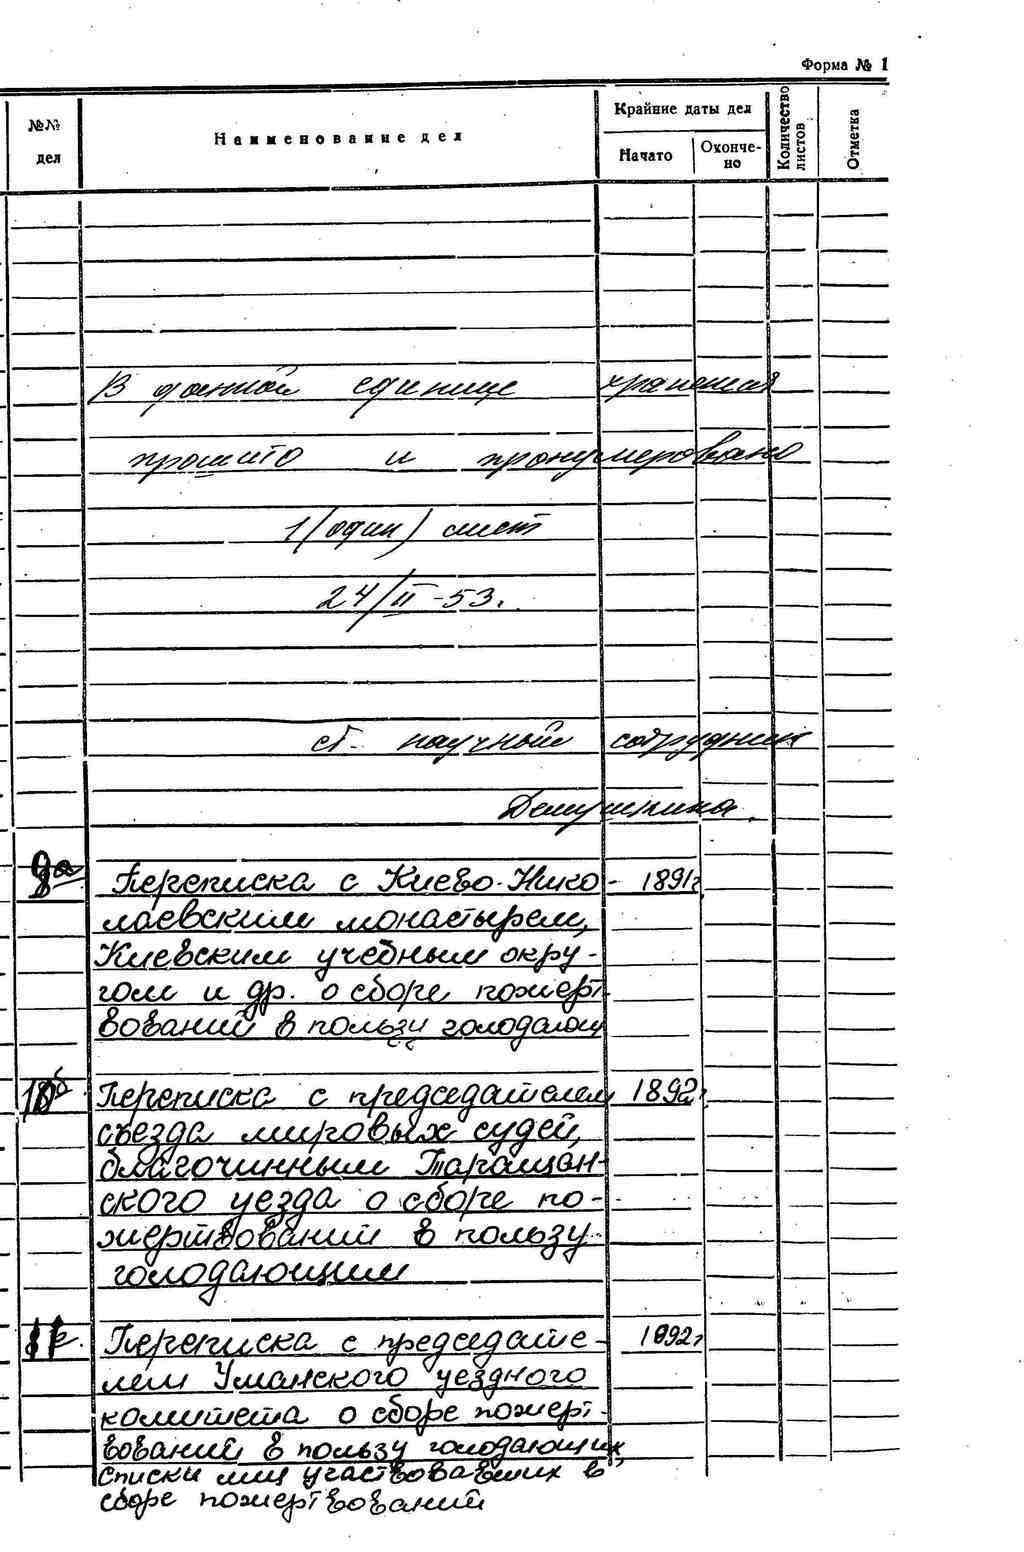 Форма № 1
№№ дел
Наименование дел
Крайние даты дел
Начато
Окончено
Количество листов
Отметка
В данной единице хранения
прошито и пронумеровано
1 (один) лист
24/II-53.
ст. научный сотрудник
Переписка с Киево-Нико- 1891г
лаевским монастырем,
Киевским учебным окру-
гом и др. о сборе пожерт-
вований в пользу голодающ
Переписка с председателем 1892г
съезда мировых судей,
благочинным Таращан-
ского уезда о сборе по-
жертвований в пользу
голодающим
Переписка с председате- 1892г
лем Уманского уездного
комитета о сборе пожерт-
вований в пользу голодающих,
списки лиц участвовавших в
сборе пожертвований